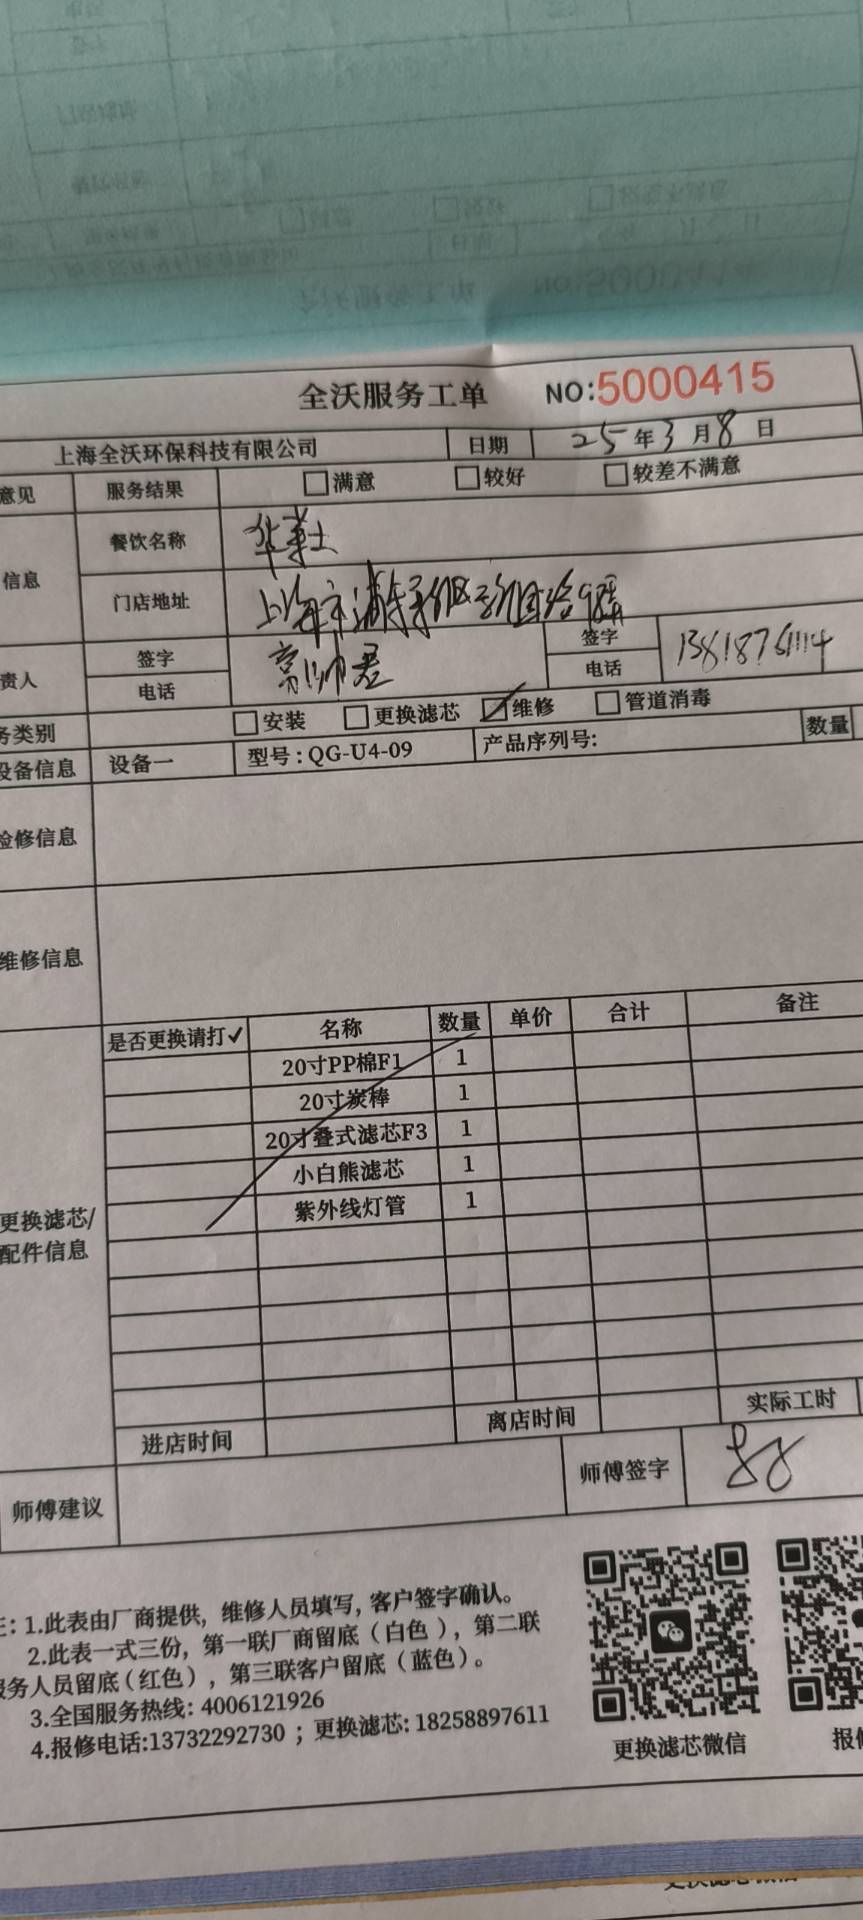 全沃服务工单 NO:5000415
上海全沃环保科技有限公司 日期 25年3月8日
意见 服务结果 满意 较好 较差不满意
信息 餐饮名称 华莱士
门店地址 上海市浦东
责人 签字 签字
电话 电话 13818761114
务类别 安装 更换滤芯 维修 管道消毒
设备信息 设备一 型号:QG-U4-09 产品序列号: 数量
检修信息
维修信息
是否更换请打✓ 名称 数量 单价 合计 备注
20寸PP棉F1 1
20寸炭棒 1
20寸叠式滤芯F3 1
小白熊滤芯 1
紫外线灯管 1
更换滤芯/
配件信息
进店时间 离店时间 实际工时
师傅建议 师傅签字
注: 1.此表由厂商提供, 维修人员填写, 客户签字确认。
2.此表一式三份, 第一联厂商留底(白色), 第二联
服务人员留底(红色), 第三联客户留底(蓝色)。
3.全国服务热线: 4006121926
4.报修电话:13732292730 ; 更换滤芯: 18258897611
更换滤芯微信 报修